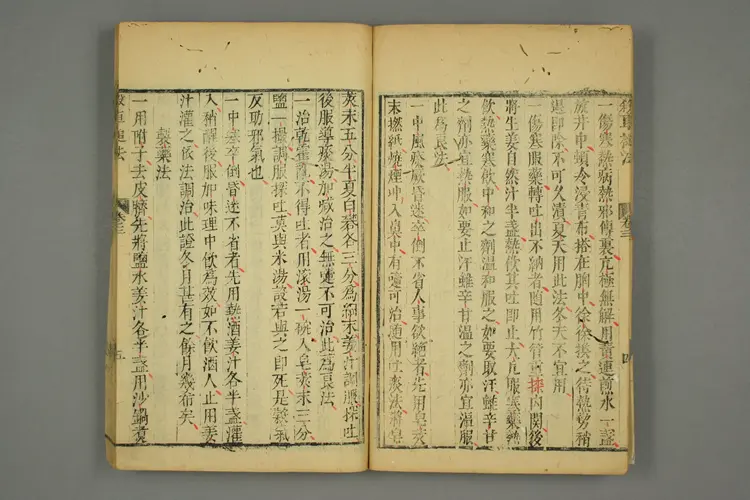 一傷寒熱病熱邪傳裏亢極無解用黃連煎水一盞
放井中頓冷浸青布搭在胸中徐徐換之待熱勢稍
退即除不可久漬夏天用此法冬天不宜用
一傷寒服藥轉吐出不納者隨用竹管重捺內關後
將生姜自然汁半盞熱飲其吐即止大凡服寒藥熱
飲熱藥寒飲中和之劑溫和服之如要取汗雖辛甘
之劑亦宜熱服如要止汗雖辛甘溫之劑亦宜涼服
此為良法
一中風痰厥昏迷卒倒不省人事欲絕者先用皂莢
末撚紙燒煙冲入鼻中有嚏可治隨用吐痰法將皂
莢末五分半夏白礬各三分為細末姜汁調服探吐
後服導痰湯加減治之無嚏不可治此為良法
一治乾霍亂不得吐者用滾湯一碗入皂莢末三分
鹽一撮調服探吐莫與米湯設若與之即死是榖氣
反助邪氣也
一中寒卒倒昏迷不省者先用熱酒姜汁各半盞灌
入稍醒後服加味理中飲為效如不飲酒人止用姜
汁灌之依法調治此證冬月甚有之餘月幾希矣
製藥法
一用附子去皮臍先將鹽水姜汁各半盞用沙鍋煮